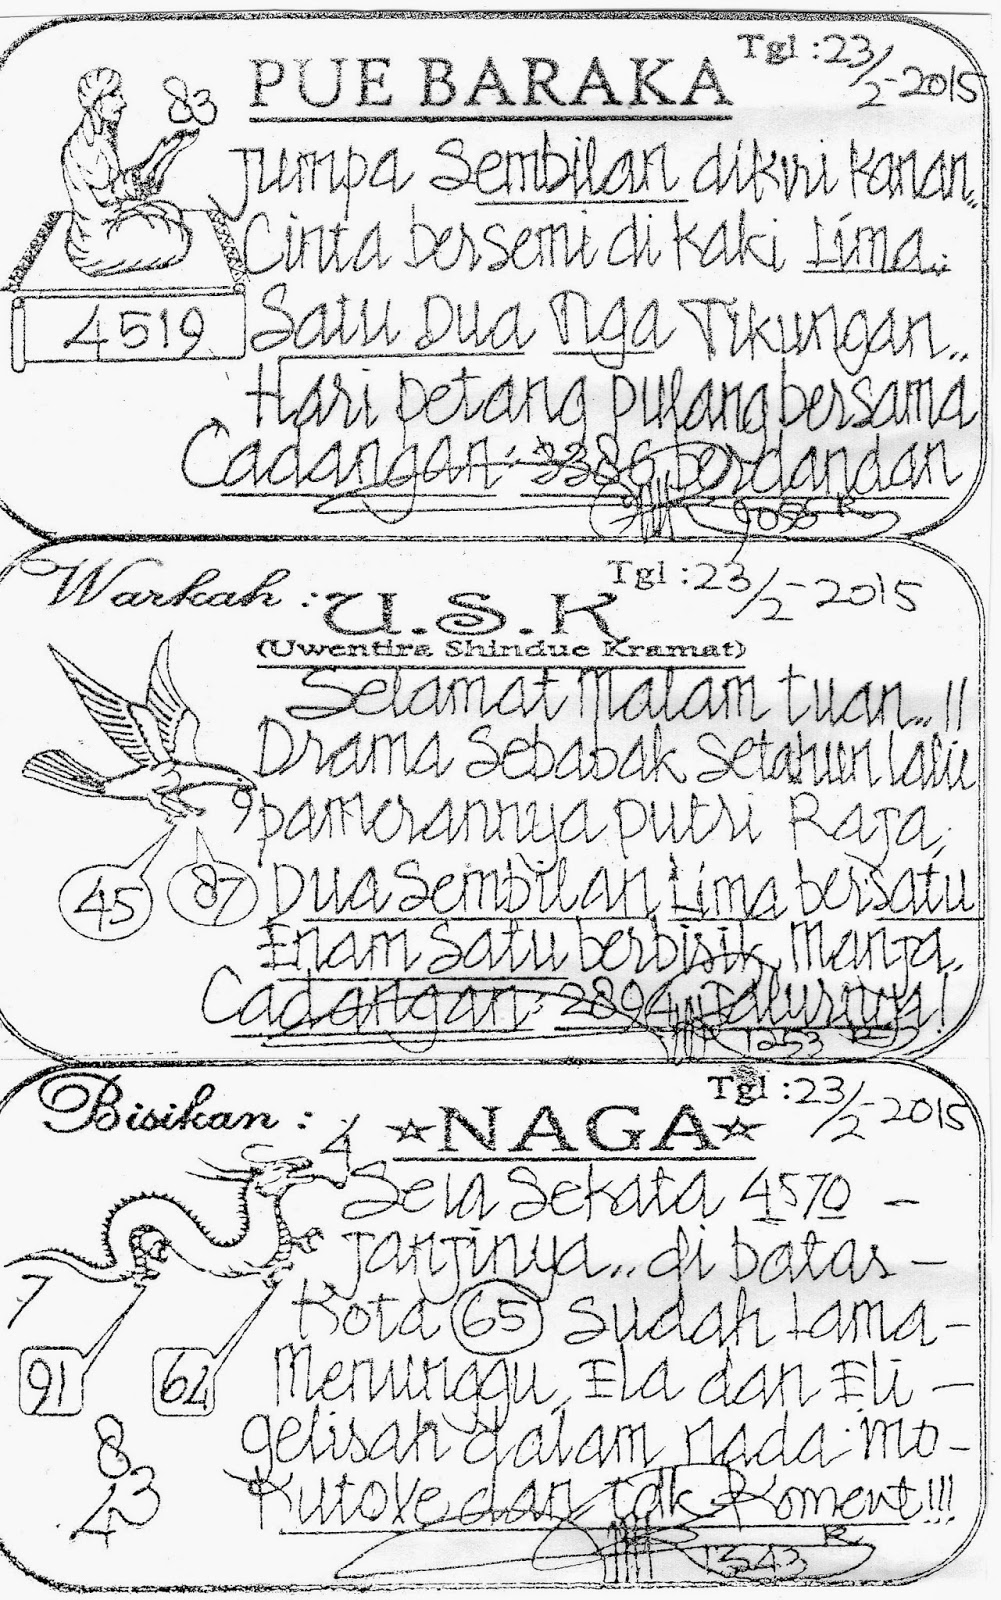 Tgl : 23/2-2015
PUE BARAKA
83
Jumpa Sembilan dikiri Kanan..
Cinta bersemi di Kaki Lima..
4519
Satu Dua Tiga Tikungan..
Hari petang pulang bersama
Cadangan : 3386 berdandan
9055 R
Warkah : U.S.K
Tgl : 23/2-2015
(Uwentira Shindue Kramat)
Selamat Malam tuan..!!
Drama Sebabak Setahun lalu
9
pamerannya putri Raja,
45 87
Dua Sembilan Lima bersatu
Enam Satu berbisik Manja..
Cadangan : 2894 Jalurnya!
1253 R
Bisikan : ☆NAGA☆
Tgl : 23/2-2015
4
Seia Sekata 4570 -
Janjinya.. di batas -
7
Kota 65 Sudah Lama -
91 62
Menunggu, Ela dan Eli -
8
gelisah dalam nada : Mo -
43
Kutove dan tdk Koment!!!
1343 R